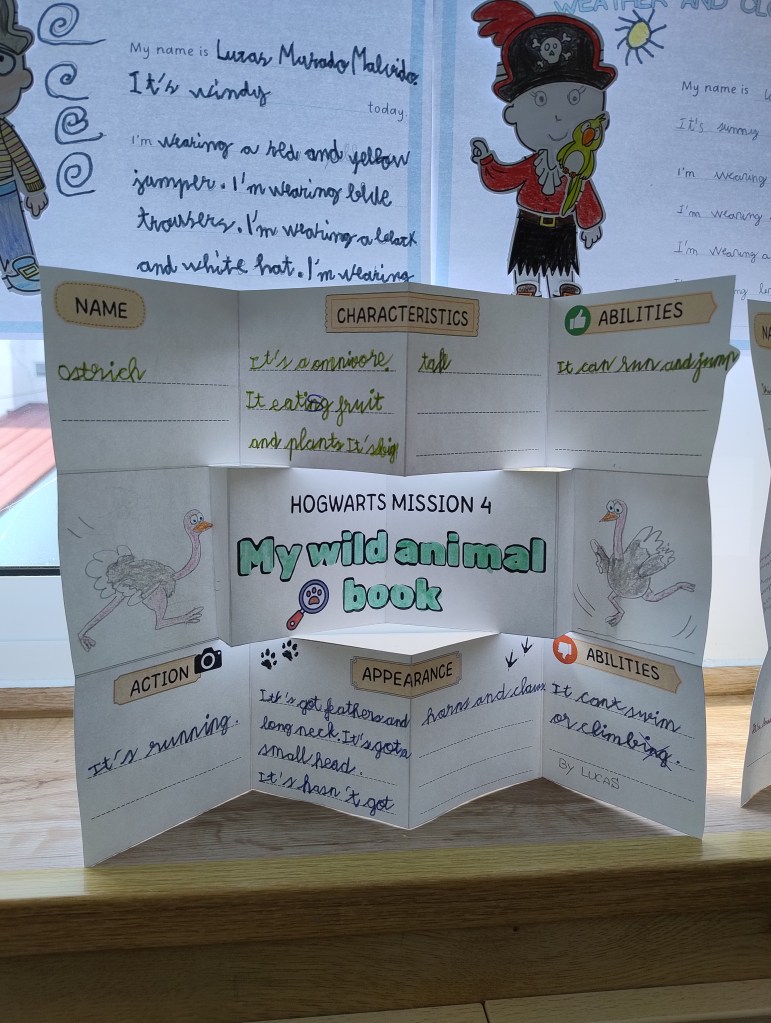 My name is Lucas Murado Malvido.
It's windy
today.
I'm wearing a red and yellow
jumper. I'm wearing blue
trousers. I'm wearing a black
and white hat. I'm wearing
WEATHER AND CLO
My name is
It's sunny
I'm wearing
I'm wearing
I'm wearing a
NAME
ostrich
CHARACTERISTICS
It's a omnivore.
It eating fruit
and plants It's big
tall
ABILITIES
It can run and jump
HOGWARTS MISSION 4
My wild animal
book
ACTION
It's running.
APPEARANCE
It's got feathers and
long neck. It's got a
small head.
It's hasn't got
horns and claws
ABILITIES
It can't swim
or climbing.
BY LUCAS